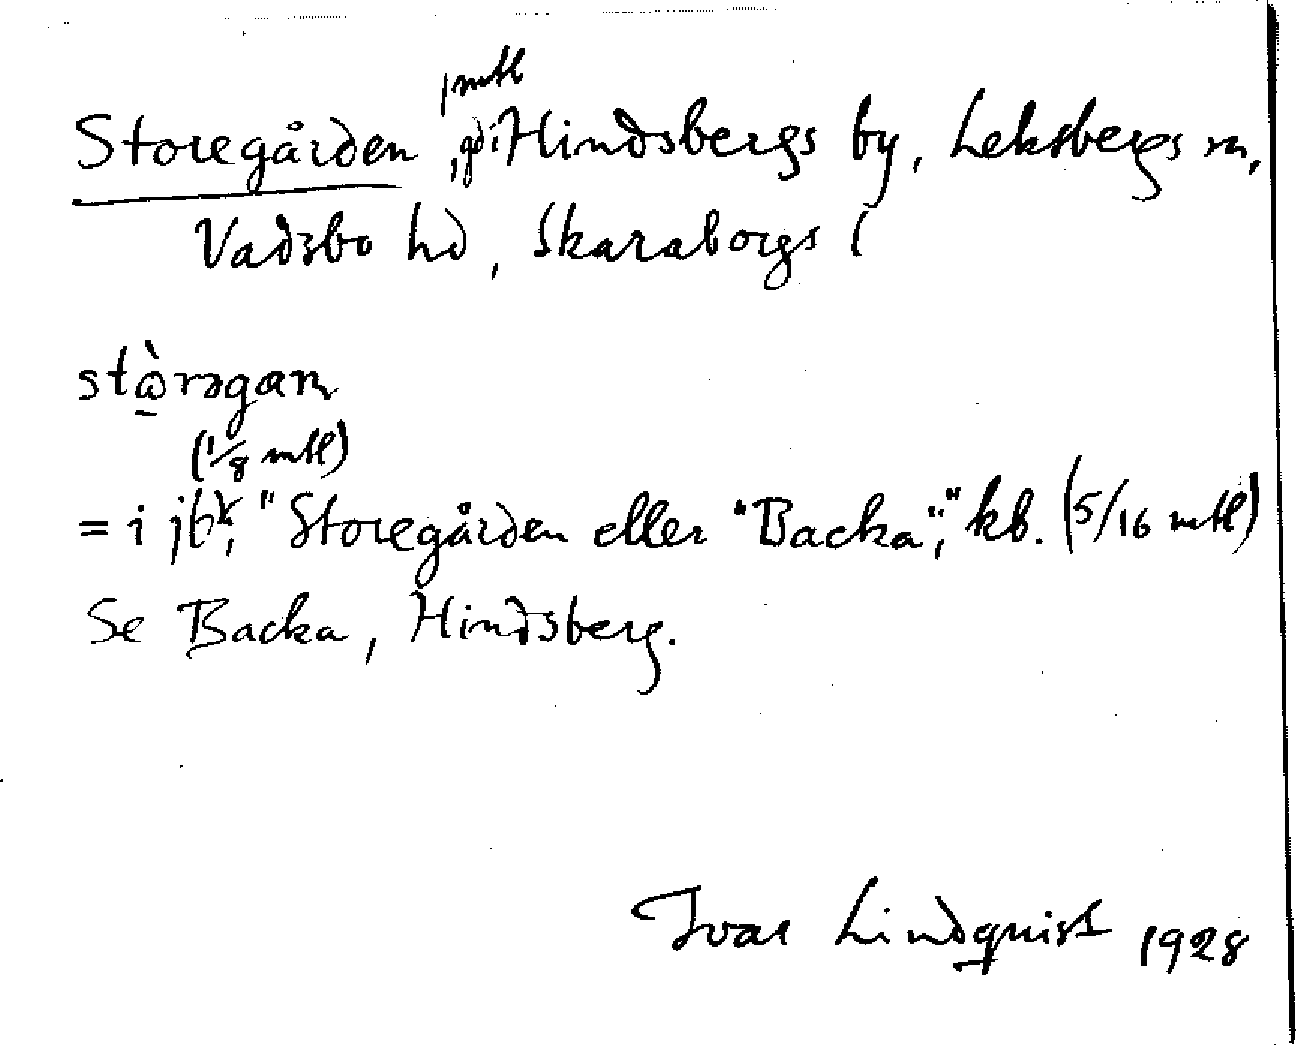 1 mtl
Storegården, gd i Hindsbergs by, Leksbergs sn,
Vadsbo hd, Skaraborgs l
stὼrəgaɳ
(1/8 mtl)
= i jbk, "Storegården eller "Backa"," kb. (5/16 mtl)
Se Backa, Hindsberg.
Ivar Lindquist 1928